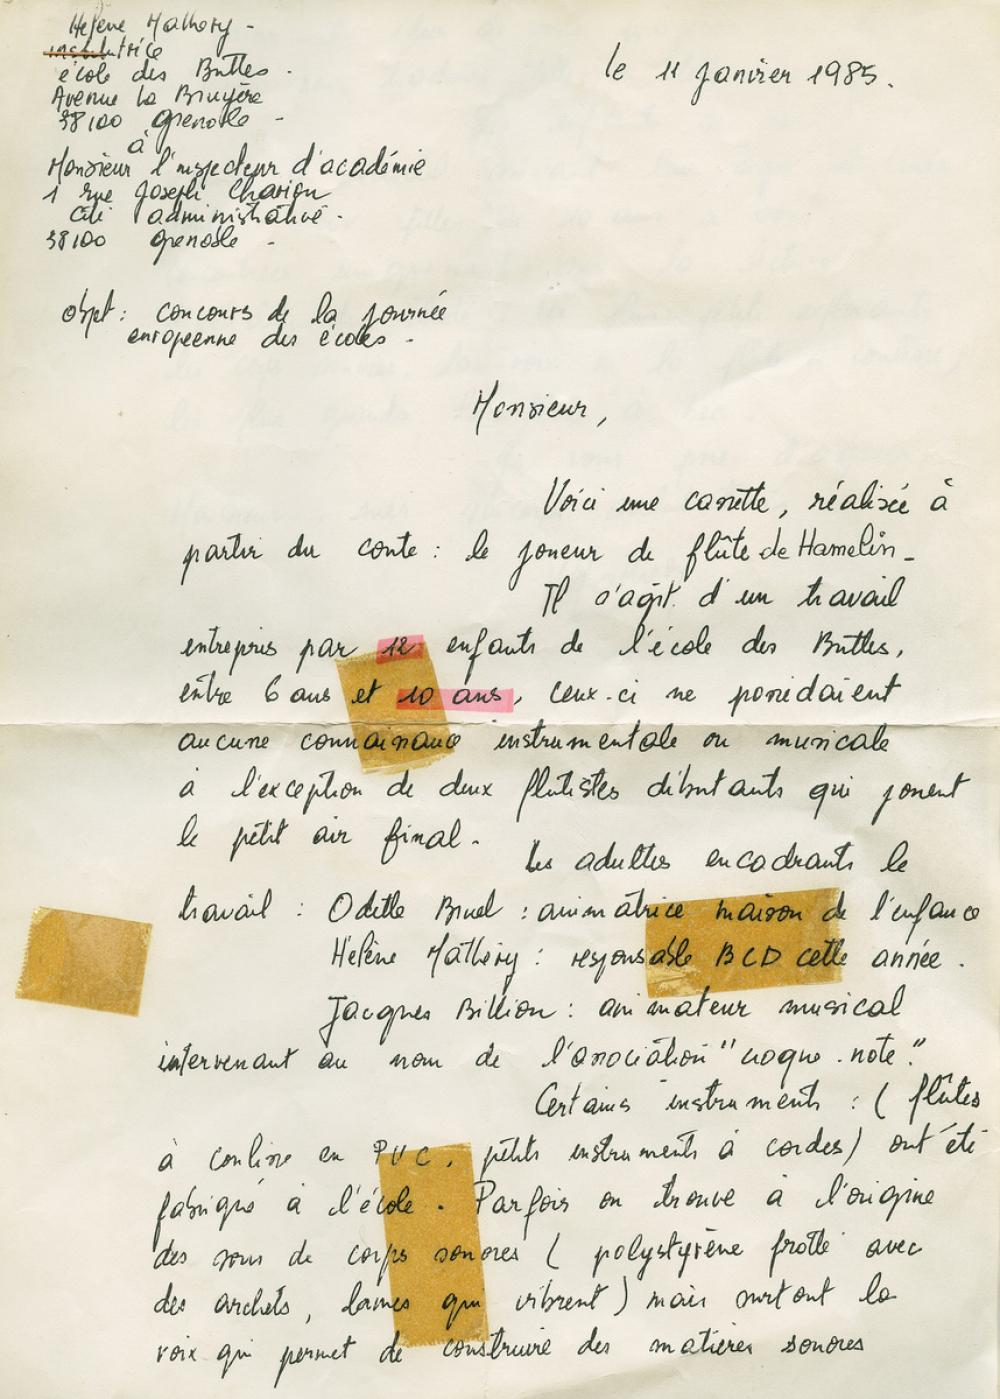 Hélène Mathery -
institutrice
école des Buttes.
Avenue la Bruyère
38100 Grenoble -
à
Monsieur l'inspecteur d'académie
1 rue Joseph Chanrion
Cité administrative.
38100 Grenoble -
le 11 janvier 1985.
objet : concours de la journée
européenne des écoles -
Monsieur,
Voici une cassette, réalisée à
partir du conte : le joueur de flûte de Hamelin -
Il s'agit d'un travail
entrepris par 12 enfants de l'école des Buttes,
entre 6 ans et 10 ans, ceux-ci ne possédaient
aucune connaissance instrumentale ou musicale
à l'exception de deux flûtistes débutants qui jouent
le petit air final.
Les adultes encadrants le
travail : Odette Bruel : animatrice maison de l'enfance
Hélène Mathery : responsable BCD cette année.
Jacques Billion : animateur musical
intervenant au nom de l'association "croque-note".
Certains instruments : ( flûtes
à coulisse en PVC, petits instruments à cordes) ont été
fabriqué à l'école. Parfois on trouve à l'origine
des sons de corps sonores ( polystyrène frotté avec
des archets, lames qui vibrent) mais surtout la
voix qui permet de construire des matières sonores